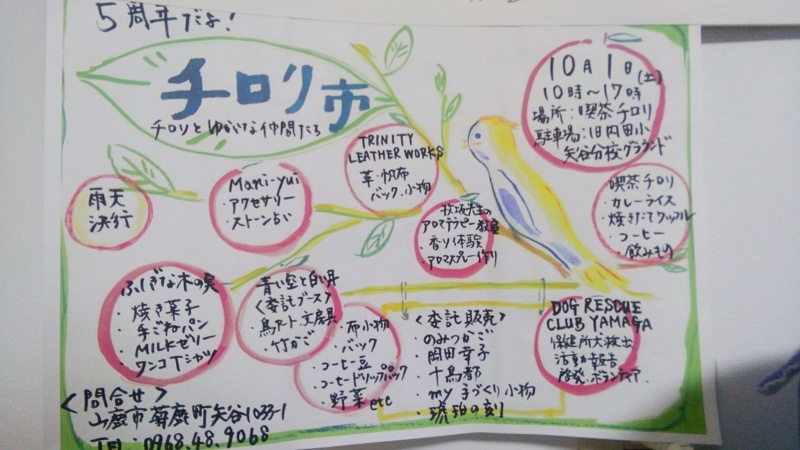 5周年だよ!
チロリ市
チロリとゆかいな仲間たち
10月1日(土)
10時~17時
場所:喫茶チロリ
駐車場:旧内田小
矢谷分校グラウンド
雨天
決行
Mani-yui
・アクセサリー
・ストーン占い
TRINITY
LEATHER WORKS
革・帆布
バック、小物
牧坂先生の
アロマテラピー教室
・香り体験
・アロマスプレー作り
喫茶チロリ
・カレーライス
・焼きたてワッフル
・コーヒー
・飲みもの
ふしぎな木の実
・焼き菓子
・手ごねパン
・MILKゼリー
・ワンコTシャツ
青い空と白い月
<委託ブース>
・鳥アート文房具
・竹かご
・布小物
・バック
・コーヒー豆
・コーヒードリップパック
・野菜etc
<委託販売>
・のみつかご
・岡田幸子
・十鳥都
・my手づくり小物
・琥珀の刻
DOG RESCUE
CLUB YAMAGA
保健所犬救出
活動報告
啓発・ボランティア
<問合せ>
山鹿市菊鹿町矢谷1033-1
TEL:0968.48.9068